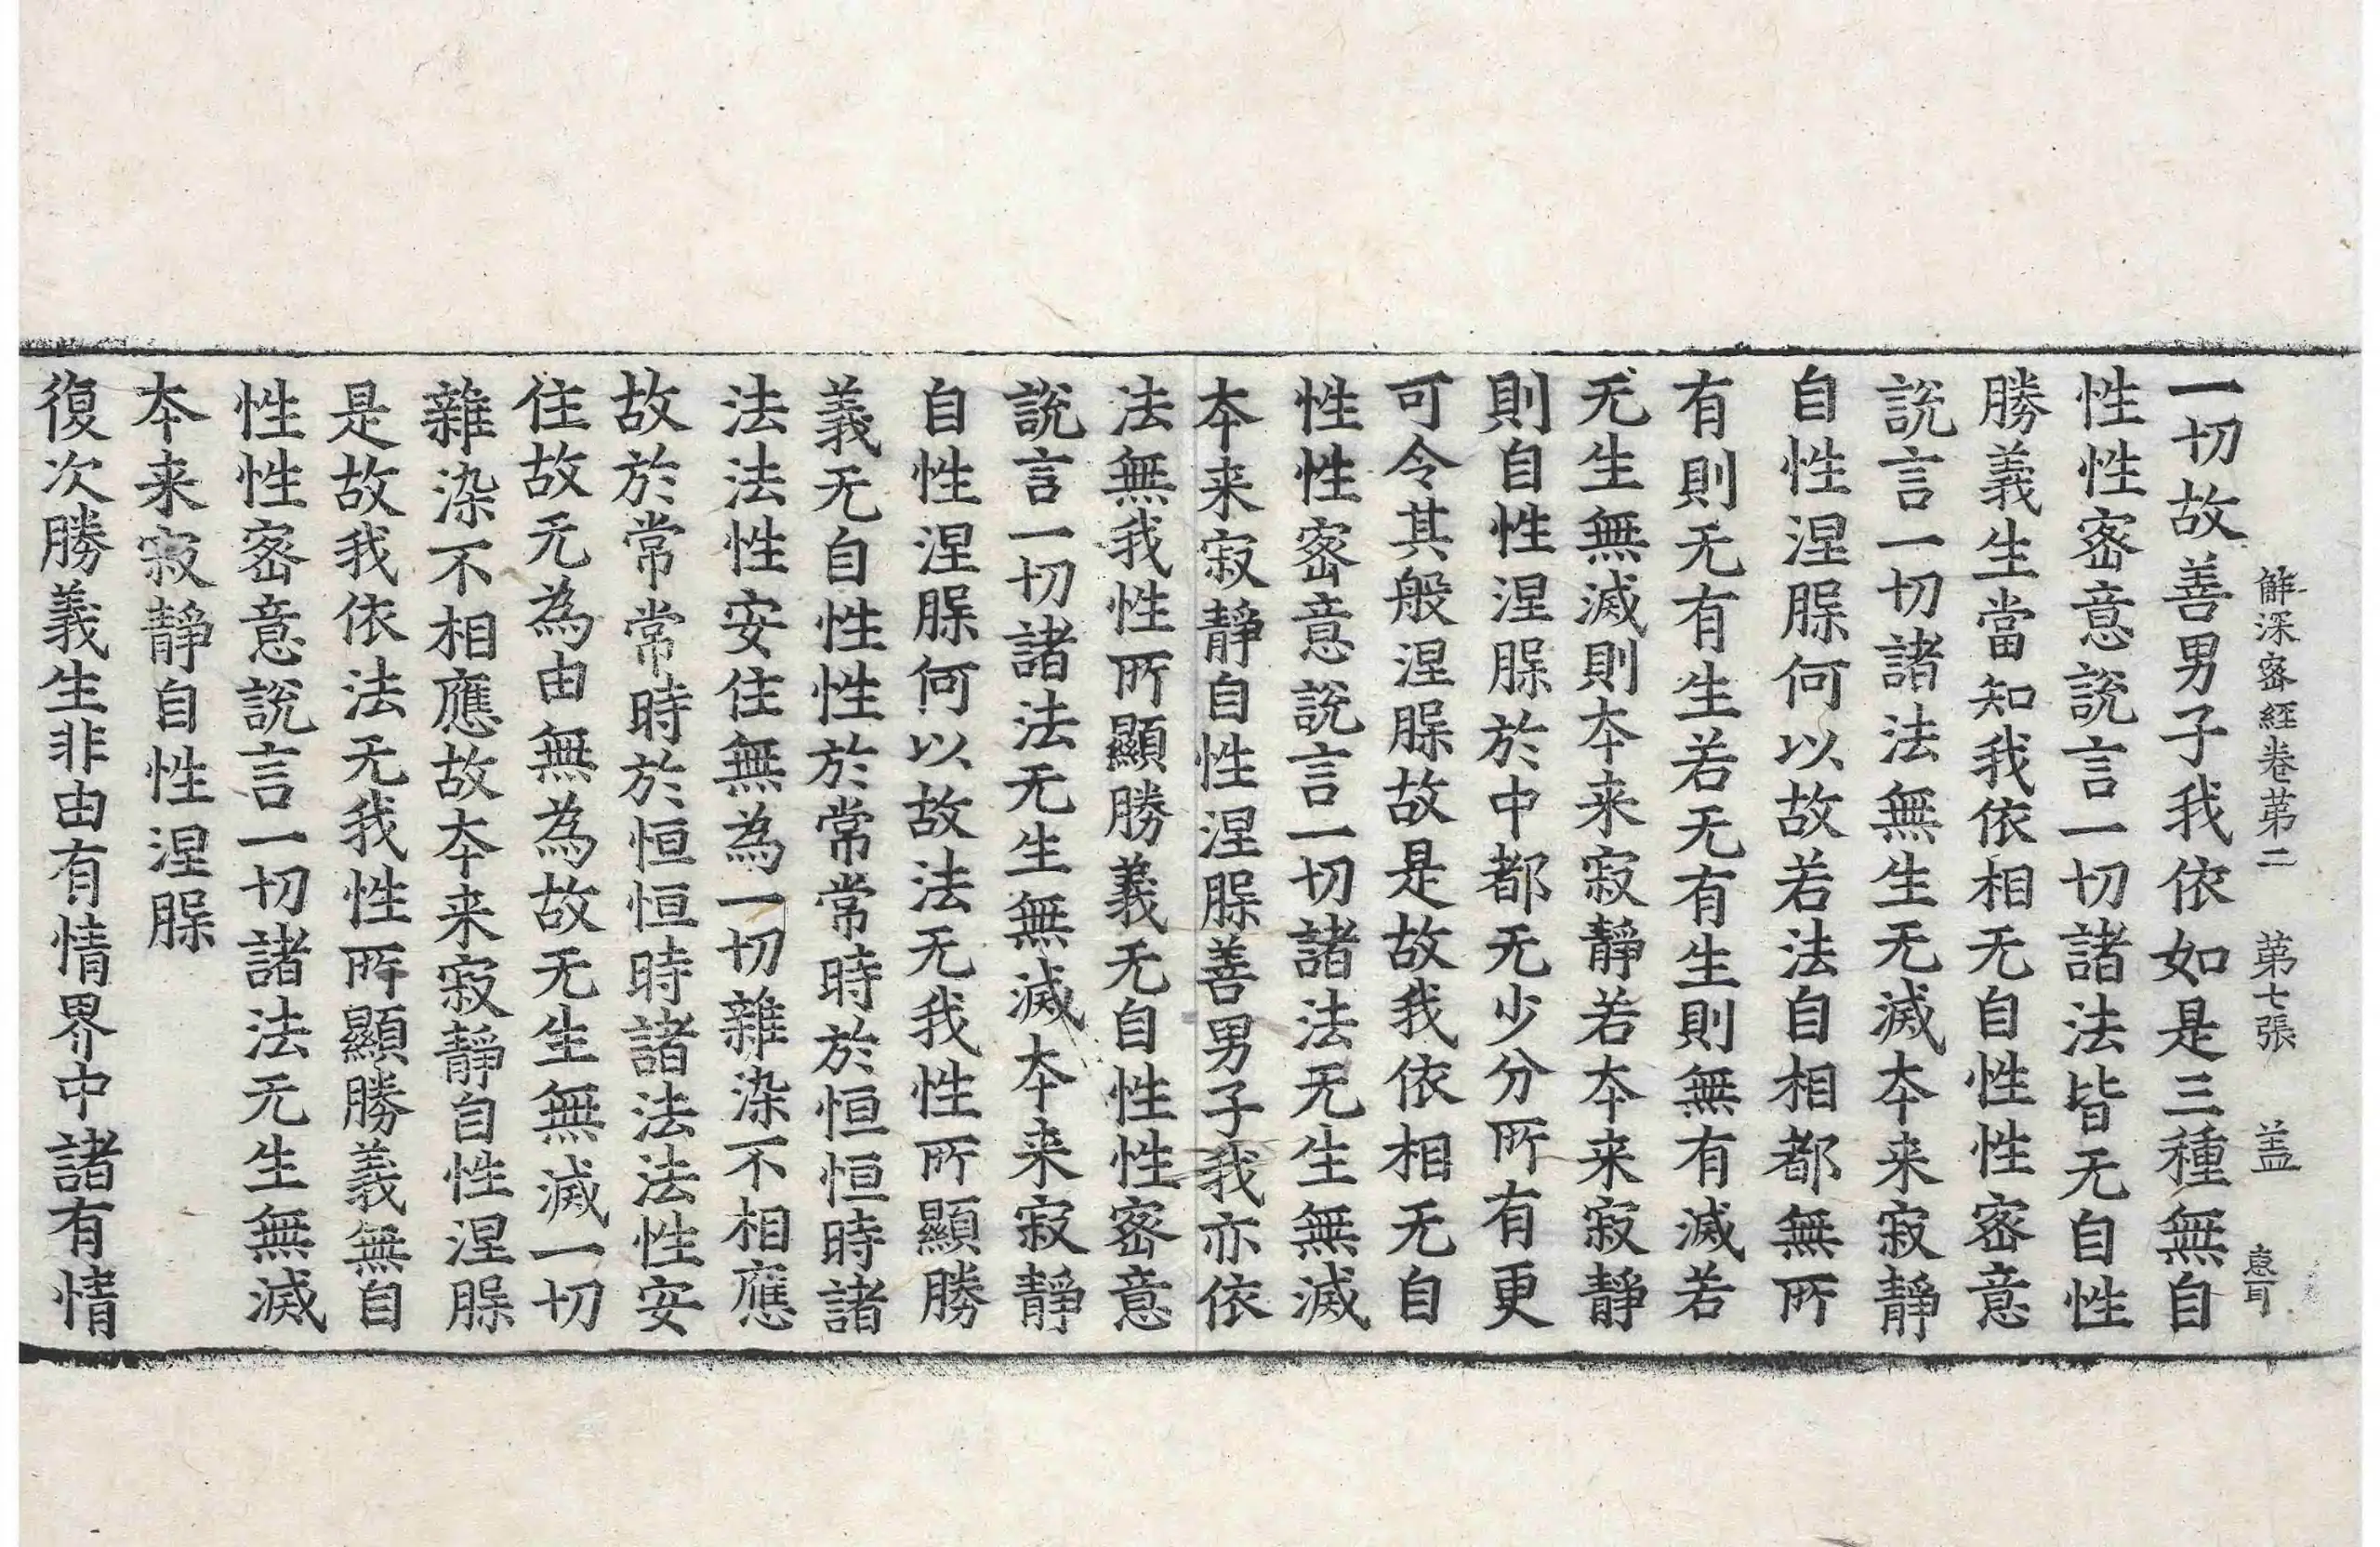 解深密經卷苐二 苐七張 盖
一切故善男子我依如是三種無自
性性密意說言一切諸法皆无自性
勝義生當知我依相无自性性密意
說言一切諸法無生无滅本来寂靜
自性涅槃何以故若法自相都無所
有則无有生若无有生則無有滅若
无生無滅則本来寂靜若本来寂靜
則自性涅槃於中都无少分所有更
可令其般涅槃故是故我依相无自
性性密意說言一切諸法无生無滅
本来寂靜自性涅槃善男子我亦依
法無我性所顯勝義无自性性密意
說言一切諸法无生無滅本来寂靜
自性涅槃何以故法无我性所顯勝
義无自性性於常常時於恒恒時諸
法法性安住無為一切雜染不相應
故於常常時於恒恒時諸法法性安
住故无為由無為故无生無滅一切
雜染不相應故本来寂靜自性涅槃
是故我依法无我性所顯勝義無自
性性密意說言一切諸法无生無滅
本来寂靜自性涅槃
復次勝義生非由有情界中諸有情